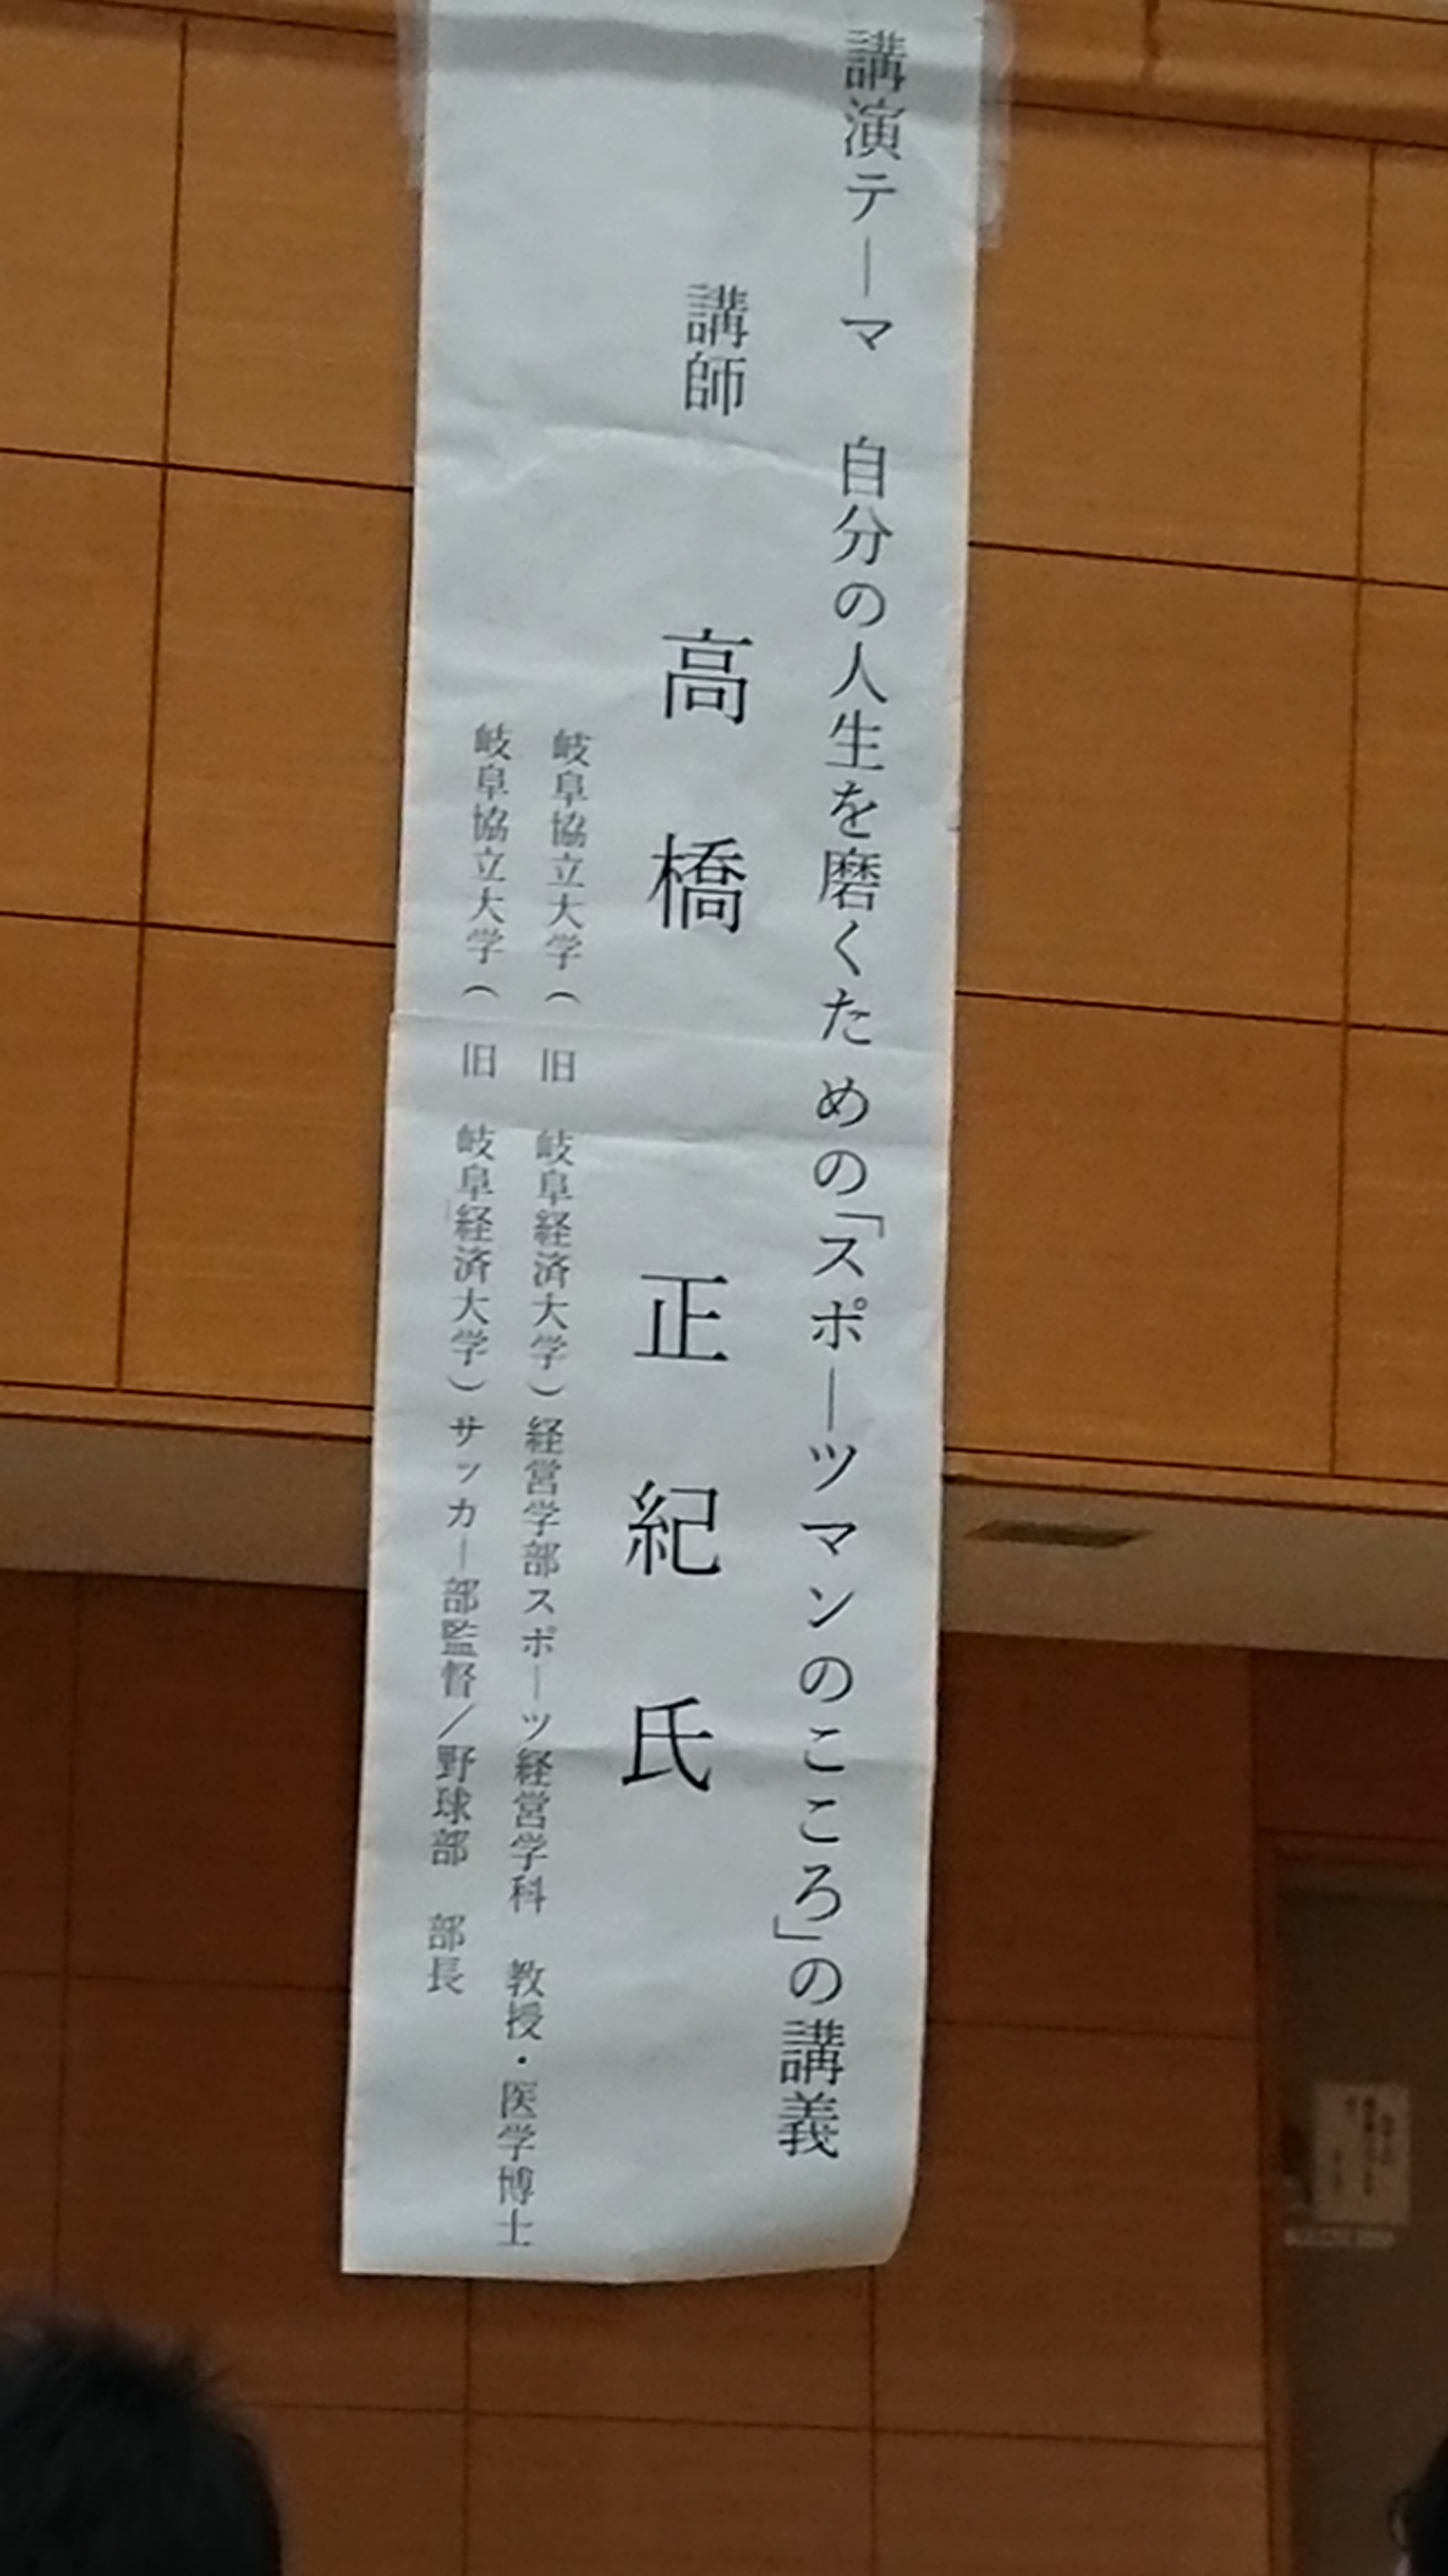 講演テーマ　自分の人生を磨くための「スポーツマンのこころ」の講義
講師　高橋　正紀　氏
岐阜協立大学（旧　岐阜経済大学）経営学部スポーツ経営学科　教授・医学博士
岐阜協立大学（旧　岐阜経済大学）サッカー部監督／野球部　部長